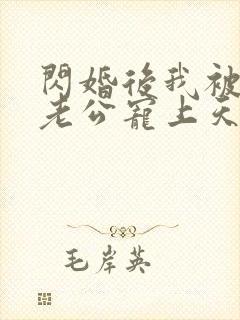 閃婚後我被
老公寵上天
毛岸英